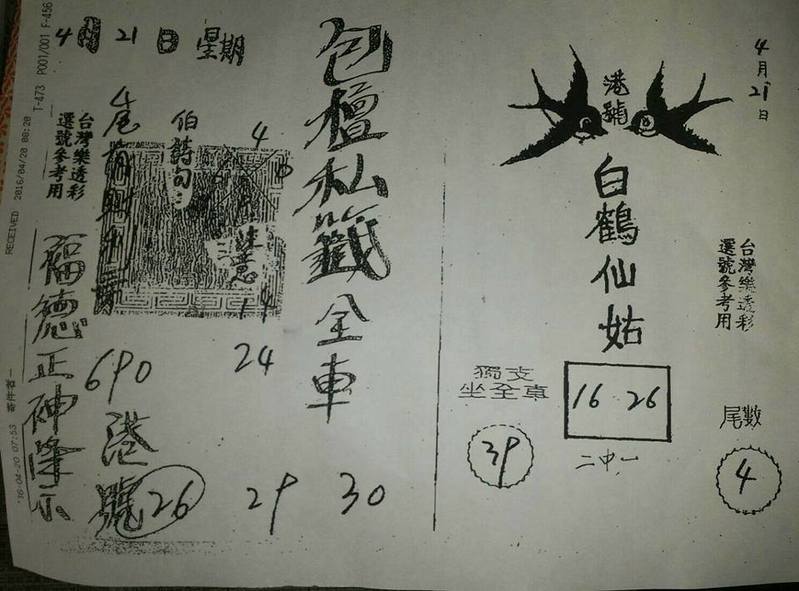 RECEIVED 2016/04/20 08:20 T-473 P001/001 F-456
4月21日星期
台灣樂透彩
選號參考用
福德正神降示
伯詩句
24
690
港號
26 29 30
包壇私籤全車
4月21日
港號
白鶴仙姑
台灣樂透彩
選號參考用
獨支
坐全車
39
16 26
二中一
尾數
4